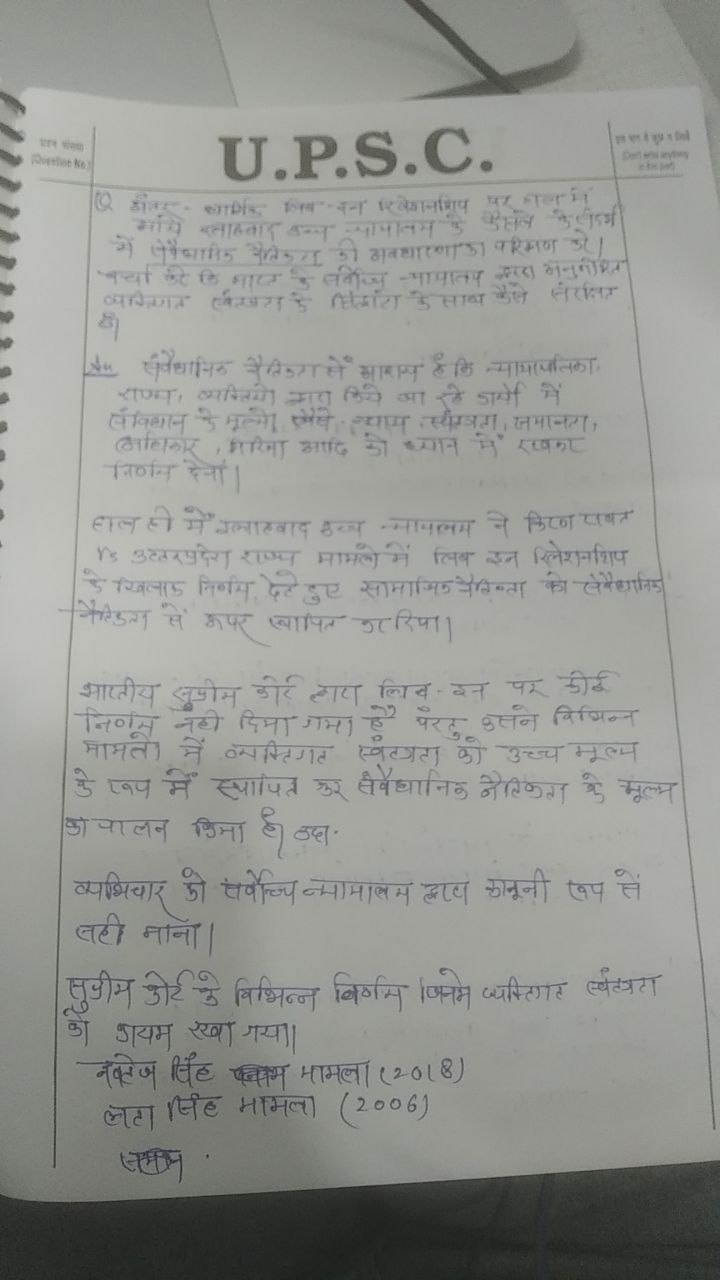 प्रश्न संख्या
(Question No.)
U.P.S.C.
इस भाग में कुछ न लिखें
(Don't write anything in this part)
Q अंतर - धार्मिक लिव-इन रिलेशनशिप पर हाल में
इलाहबाद उच्च न्यायालय के फैसले के संदर्भ
में संवैधानिक नैतिकता की अवधारणा का परीक्षण करें।
चर्चा करें कि भारत के सर्वोच्च न्यायालय द्वारा
व्यक्तिगत स्वंतत्रता के सिद्धांत के साथ कैसे संरेखित
है।
Ans संवैधानिक नैतिकता से आशय है कि न्यायपालिका,
राज्य, व्यक्तियों द्वारा किये जा रहे कार्यो में
संविधान के मूल्यो जैसे, न्याय, स्वंत्रता, समानता,
अधिकार, गरिमा आदि को ध्यान में रखकर
निर्णय देना।
हाल ही में इलाहबाद उच्च न्यायालय ने किरण रावत
Vs उत्तरप्रदेश राज्य मामलो में लिव इन रिलेशनशिप
के खिलाफ निर्णय देते हुए सामाजिक नैतिकता को संवैधानिक
नैतिकता से ऊपर स्थापित कर दिया।
भारतीय सुप्रीम कोर्ट द्वारा लिव-इन पर कोई
निर्णय नहीं दिया गया है परंतु उसने विभिन्न
मामलो में व्यक्तिगत स्वंतत्रता को उच्च मूल्य
के रूप में स्थापित कर संवैधानिक नैतिकता के मूल्य
का पालन किया है। उदा.
व्यभिचार को सर्वोच्च न्यायालय द्वारा कानूनी रूप से
सही माना।
सुप्रीम कोर्ट के विभिन्न निर्णय जिनमे व्यक्तिगत स्वंतत्रता
को कायम रखा गया।
नवतेज सिंह मामला (2018)
लता सिंह मामला (2006)